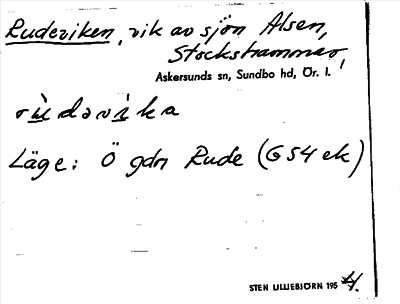 Ruderiken, vik av sjön Alsen,
Stockshammar,
Askersunds sn, Sundbo hd, Ör. l.
rùdəvìka
Läge: Ö gdn Rude (G54 ek)
STEN LILLIEBJÖRN 195